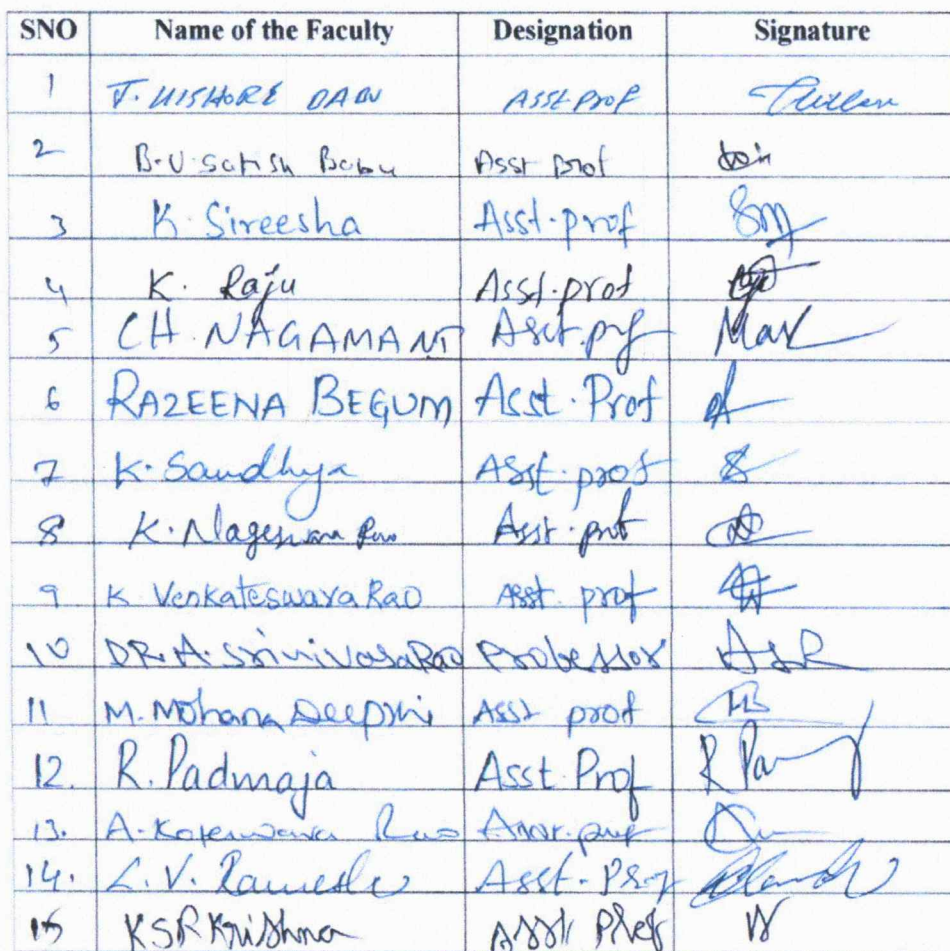 SNO Name of the Faculty Designation Signature
1 J. KISHORE BABU ASST PROF
2 B.V. Satish Babu Asst prof
3 K. Sireesha Asst. prof
4 K. Raju Asst. prof
5 CH. NAGAMANI Asst. prof
6 RAZEENA BEGUM Asst. Prof
7 K. Sandhya Asst. prof
8 K. Nageswara Rao Asst. prof
9 K Venkateswara Rao Asst. prof
10 DR. A. Srinivasa Rao Professor ASR
11 M. Mohana Deepthi Asst prof
12. R. Padmaja Asst. Prof
13. A. Rao Asst. prof
14. L. V. Ramesh Asst. Prof
15 KSR Krishna Asst. Prof